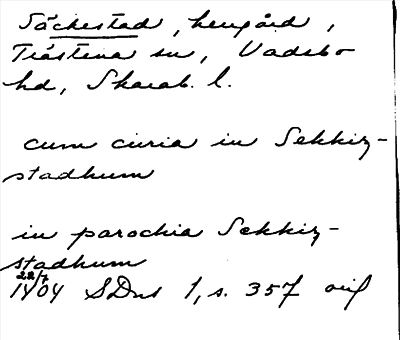 Säckestad, herrgård,
Trästena sn, Vadsbo
hd, Skarab. l.
cum curia in Sekkiz-
stadhum
in parochia Sekkiz-
stadhum
22/7
1404 SDns 1, s. 357